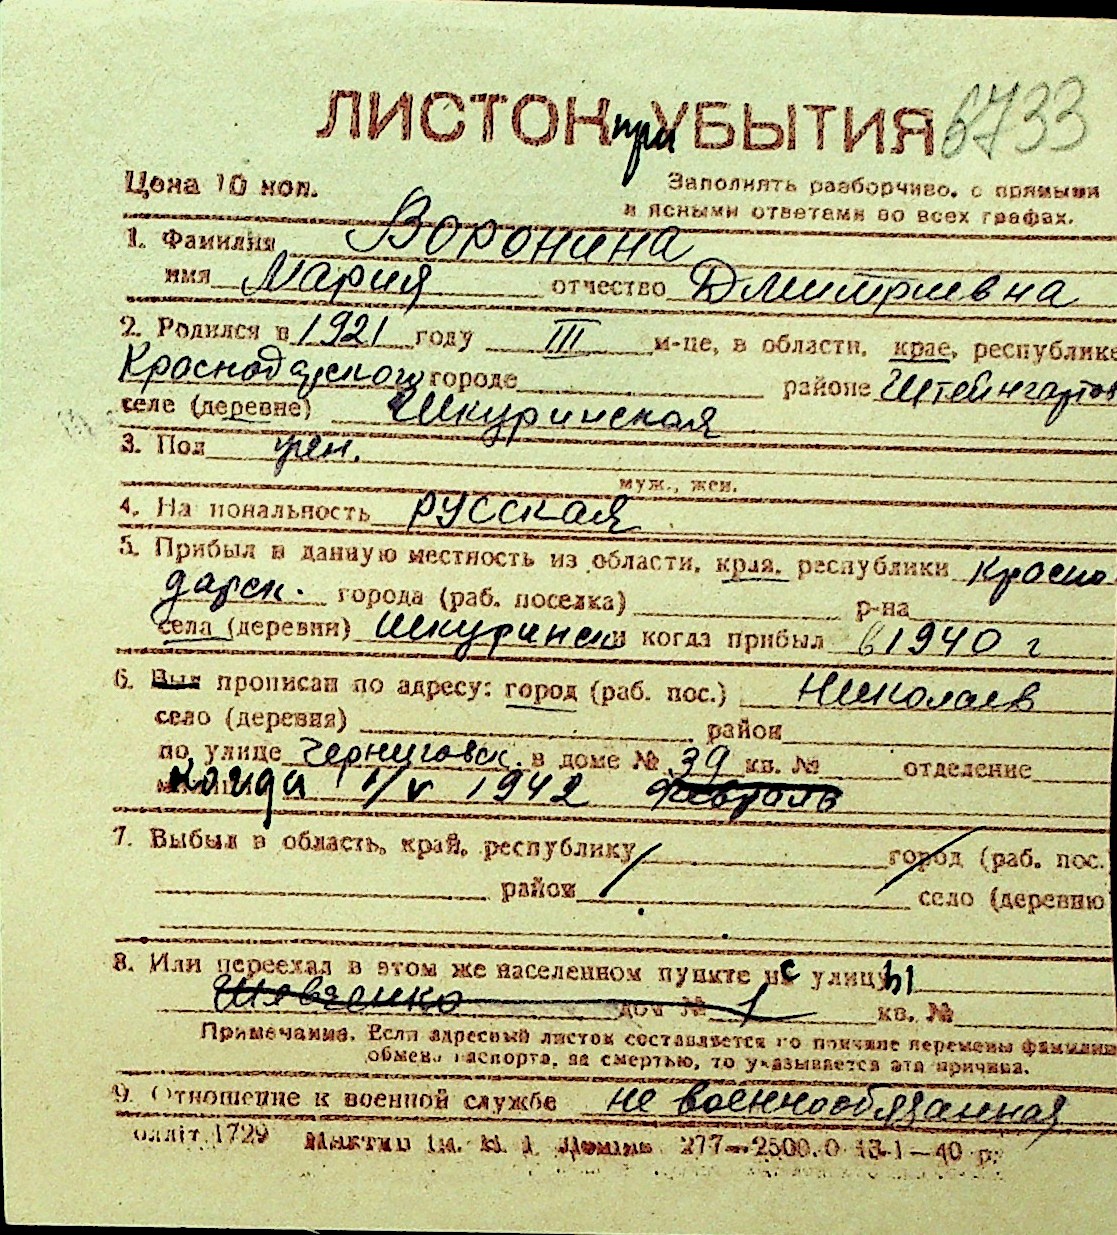 ЛИСТОК при УБЫТИЯ 6733
Цена 10 коп.
Заполнять разборчиво, с прямыми
и ясными ответами во всех графах.
1. Фамилия Воронина
имя Мария отчество Дмитриевна
2. Родился в 1921 году III м-це, в области, крае, республике
Краснодарском городе районе Штейнгартов
селе (деревне) Шкуринская
3. Пол жен.
муж., жен.
4. Национальность русская
5. Прибыл в данную местность из области, края, республики Красно
дарск. города (раб. поселка) р-на
села (деревни) Шкурински когда прибыл в 1940 г
6. Был прописан по адресу: город (раб. пос.) Николаев
село (деревня) район
по улице Черниговск. в доме № 39 кв. № отделение
когда 1/V 1942 февраль
7. Выбыл в область, край, республику город (раб. пос.)
район село (деревню
8. Или переехал в этом же населенном пункте с улицы
Шевченко дом № 1 кв. №
Примечание. Если адресный листок составляется по причине перемены фамилии
обмена паспорта, за смертью, то указывается эта причина.
9. Отношение к военной службе не военнообязанная
олліт 1729 277—2500.0 13-1—40 р.